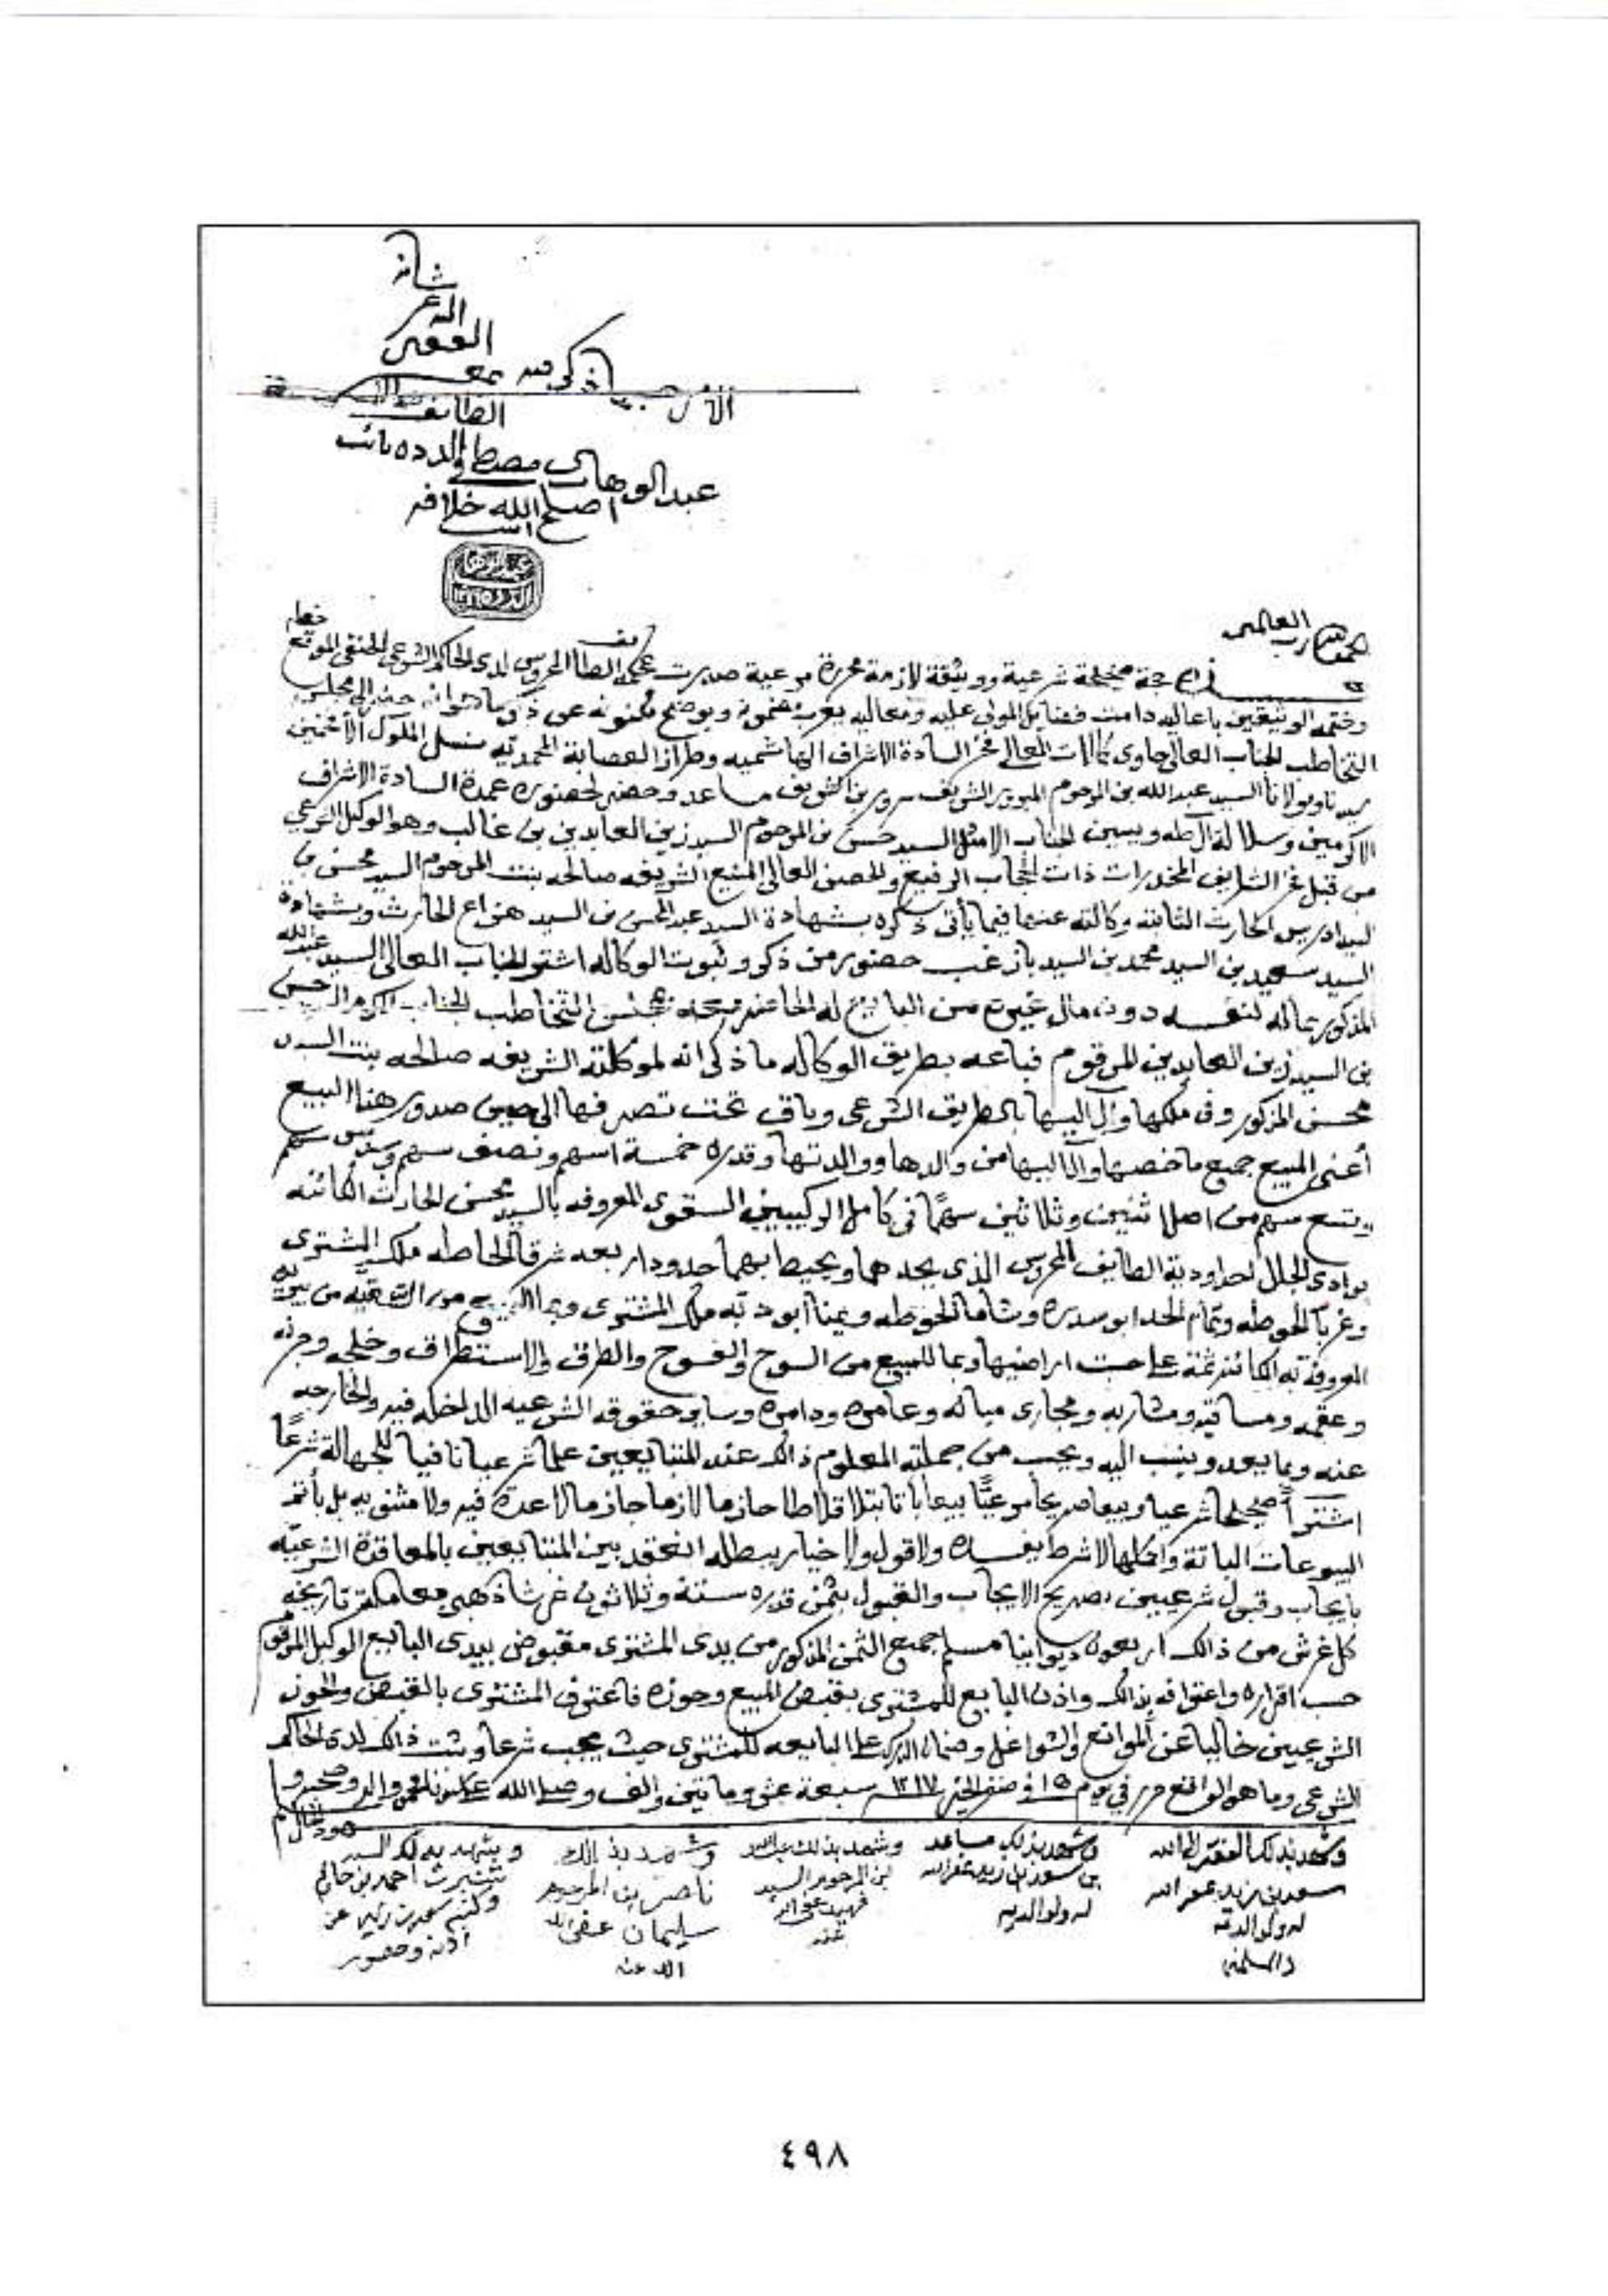 شانه
الله عز
الفقير
الأمر ذكر فيه نمقه
الطائف
عبد الوهاب مصطفى الدده نائب
اصلح الله خلافه
الحمد لله رب العالمين
حجة صحيحة شرعية ووثيقة لازمة محررة مرعية صدرت بمحكمة الطائف المحروس لدى الحاكم الشرعي الحنفي الموقع خطه
وختمه الوثيقين باعاليه دامت فضايل المولى عليه ومعاليه يعرب مضمونه ويوضح مكنونه عن ذكر ما هو انه حضر الى مجلس
التخاطب الجناب العالي حاوي كمالات المعالي فخر السادة الاشراف الهاشميه وطراز العصابة المحمديه نسل الملوك الأعظمين
سيدنا ومولانا السيد عبد الله بن المرحوم المبرور الشريف سرور بن الشريف مساعد وحضر لحضوره عمدة السادة الاشراف
الاكرمين وسلالة آل طه ويسين الجناب الامثل السيد حسن بن المرحوم السيد زين العابدين بن غالب وهو الوكيل الشرعي
من قبل فخر الشرايف المخدرات ذات الحجاب الرفيع والحصن العالي المنيع الشريفه صالحه بنت المرحوم السيد محسن بن
السيد ادريس الحارث الثابته وكالته عنها فيما يأتي ذكره بشهادة السيد عبد المحسن بن السيد هزاع الحارث وبشهادة
السيد سعيد بن السيد محمد بن السيد باز غب حضور من ذكر وثبوت الوكاله اشترا الجناب العالي السيد عبد الله
المذكور بماله لنفسه دون مال غيره من البايع له الحاضر معه بمجلس التخاطب الجناب المكرم السيد حسن
بن السيد زين العابدين المرقوم فباعه بطريق الوكاله ما ذكر انه لموكلته الشريفه صالحه بنت السيد
محسن المذكور وفي ملكها وآل اليها بالطريق الشرعي وباق تحت تصرفها الى حين صدور هذا البيع
أعني المبيع جميع ما خصها وآل اليها من والدها ووالدتها وقدره خمسة اسهم ونصف سهم وسدس سهم
وتسع سهم من اصل اثنين وثلاثين سهمًا في كامل الركيبين السقوي المعروفه بالسيد محسن الحارث الكائنه
بوادي الجلل احد اودية الطايف المحروس الذي يحدهما ويحيط بهما حدود اربعه شرقاً الحاطه ملك المشتري
وغرباً الحوطه وتمام الحد ابو سدره وشاماً الحوطه ويمناً ابو دبه ملك المشتري وبما للمبيع من
المعروفة به الكائنه ثمة على حسب اراضيها وبما للمبيع من السوح والفسوح والطرق والاستطراق وخلجه وجرنه
وعقمه ومساقيه ومشاربه ومجاري مياهه وعامره ودامره وساير حقوقه الشرعيه الداخله فيه والخارجه
عنه وما يعد وينسب اليه ويحسب من جملته المعلوم ذالك عند المتبايعين علما شرعيا نافيا للجهالة شرعًا
اشتراً صحيحا شرعيا وبيعا صريحا مرعيًّا بيعا باتا بتلا قاطعا حازما لازما جازما لا عدة فيه ولا مثنويه بل بأتم
البيوعات الباتة واكملها لا شرط يفسده ولا قول ولا خيار يبطله انعقد بين المتبايعين بالمعاقدة الشرعيّه
بايجاب وقبول شرعيين بصريح الايجاب والقبول بثمن قدره ستة وثلاثون غرشا ذهبي معاملة تاريخه
كل غرش من ذالك اربعون ديوانيا مسلم جميع الثمن المذكور من يدي المشتري مقبوض بيدي البايع الوكيل المرقوم
حسب اقراره واعترافه بذالك واذن البايع للمشتري بقبض المبيع وحوزه فاعترف المشتري بالقبض والحوز
الشرعيين خاليا عن الموانع والشواغل وضمان الدرك على البايعه للمشتري حيث يجب شرعا وثبت ذالك لدى الحاكم
الشرعي وما هو الواقع حرر في يوم ١٥ في صفر الخير ١٢١٧ سنة سبعة عشر ومايتين والف وصلى الله على سيدنا محمد واله وصحبه وسلم
وشهد بذلك الفقير الى الله
سعد بن زيد غفر الله
له ولوالديه
والمسلمين
وشهد بذلك مساعد
بن سعد بن زيد غفر الله
له ولوالديه
وشهد بذلك عبد الله
بن المرحوم السيد
فهيد عفى الله
عنه
وشهد بذالك
ناصر بن المرحوم
سليمان عفى
الله عنه
ويشهد بذلك السيد
شنبرت احمد بن
وكتبه سعد بن زيد عن
اذنه وحضوره
٤٩٨